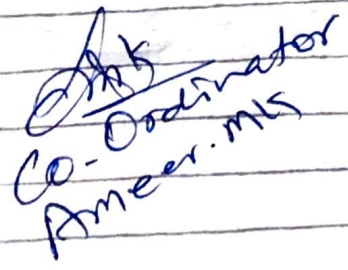 Co-Ordinator
Ameer.mk